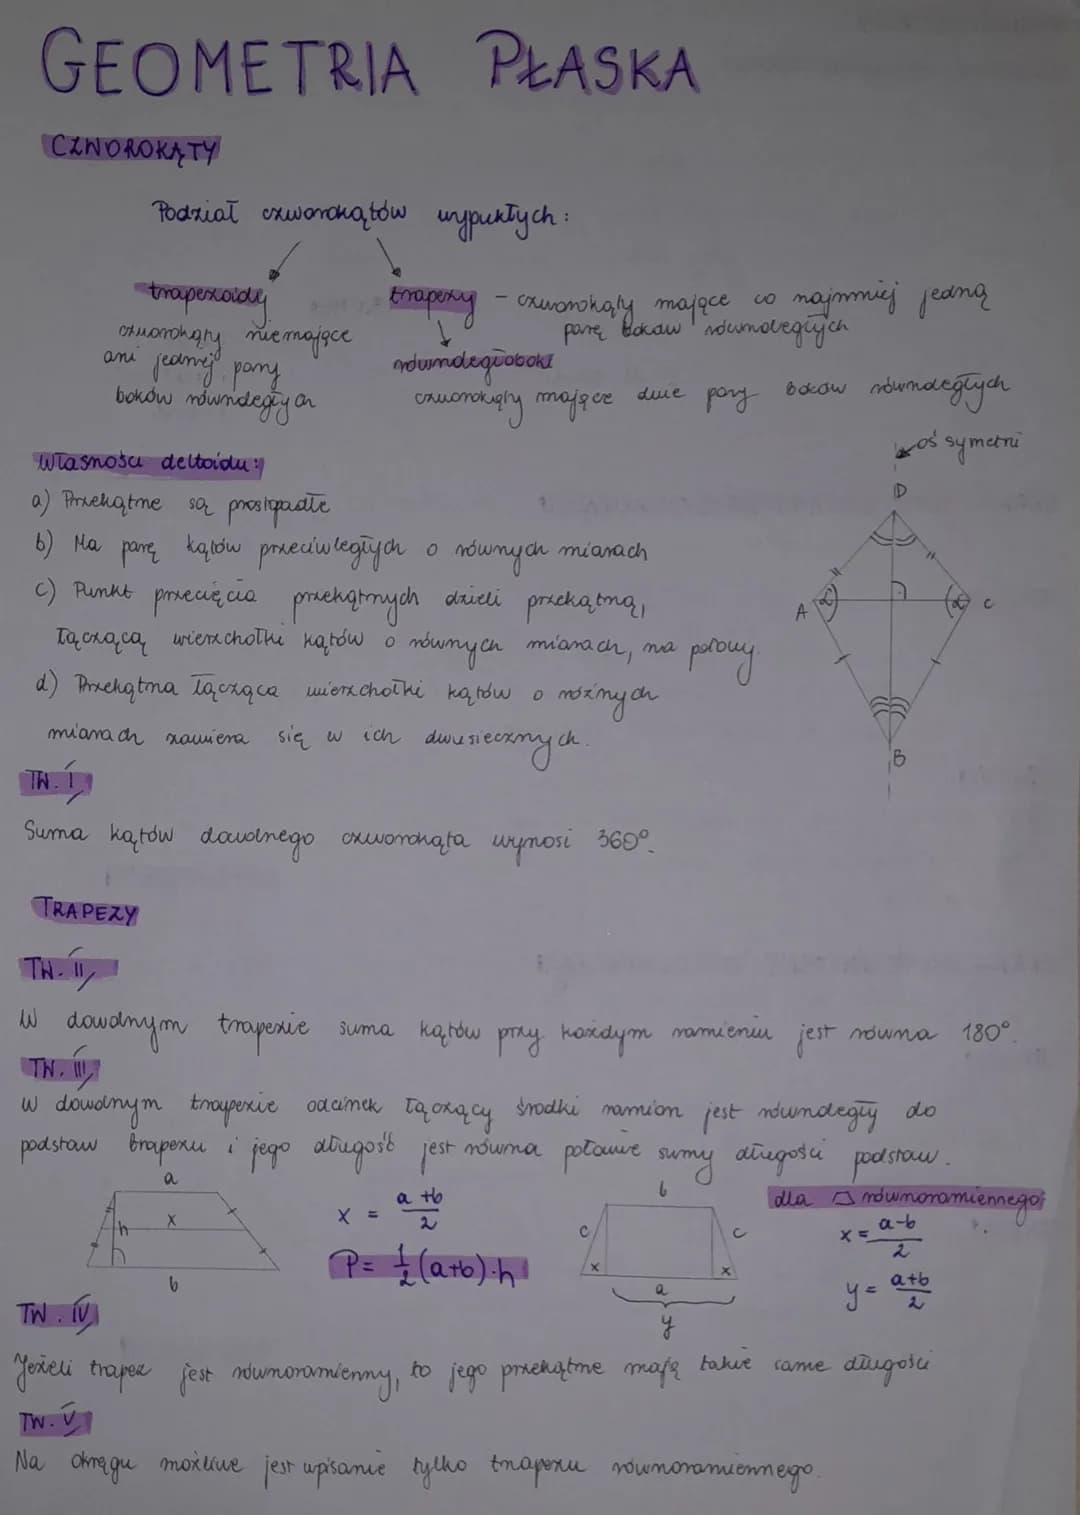 GEOMETRIA PŁASKA
CZWOROKĄTY
Podział czworokątów wypukłych:
trapezoidy
czworokąty niemające
ani jednej pary
boków równoległych
trapezy - czworokąty mające co najmniej jedną
parę boków równoległych
równoległoboki
czworokąty mające dwie pary boków równoległych
Własności deltoidu:
a) Przekątne są prostopadłe
b) Ma parę kątów przeciwległych o równych miarach
c) Punkt przecięcia przekątnych dzieli przekątną,
łączącą wierzchołki kątów o równych miarach, na połowy.
d) Przekątna łącząca wierzchołki kątów o różnych
miarach zawiera się w ich dwusiecznych.
oś symetrii
D
A α α C
B
TW. I
Suma kątów dowolnego czworokąta wynosi 360°.
TRAPEZY
TW. II
W dowolnym trapezie suma kątów przy każdym ramieniu jest równa 180°.
TW. III
W dowolnym trapezie odcinek łączący środki ramion jest równoległy do
podstaw trapezu i jego długość jest równa połowie sumy długości podstaw.
a
h x
b
x = a+b/2
P = 1/2 (a+b)·h
b
c c
x x
a
y
dla równoramiennego:
x = a-b/2
y = a+b/2
TW. IV
Jeżeli trapez jest równoramienny, to jego przekątne mają takie same długości
TW. V
Na okręgu możliwe jest wpisanie tylko trapezu równoramiennego.